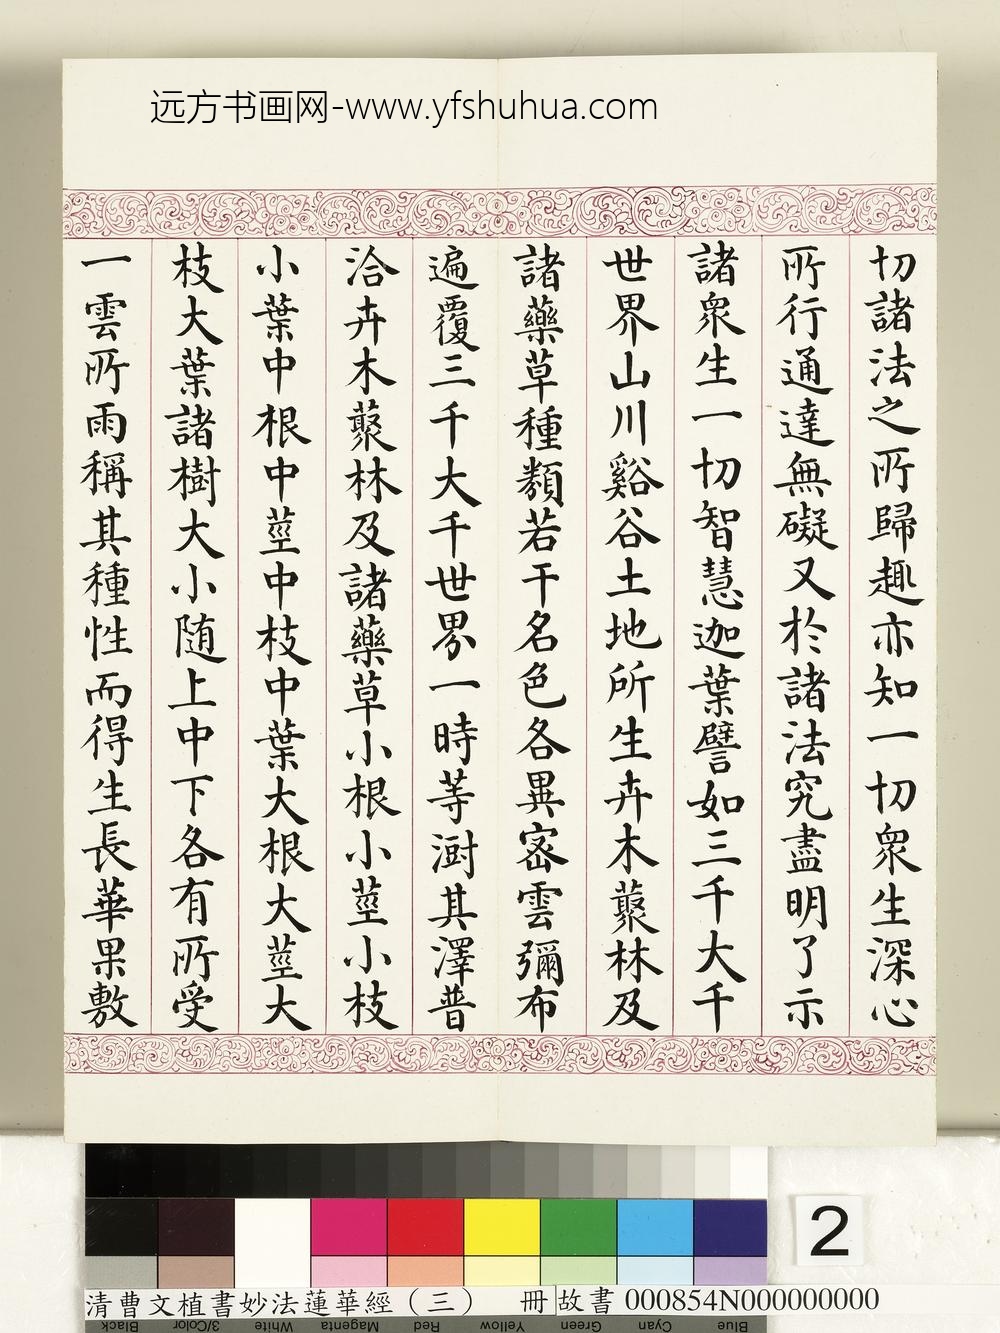 远方书画网-www.yfshuhua.com
切諸法之所歸趣亦知一切衆生深心
所行通達無礙又於諸法究盡明了示
諸衆生一切智慧迦葉譬如三千大千
世界山川谿谷土地所生卉木藂林及
諸藥草種類若干名色各異密雲彌布
遍覆三千大千世界一時等澍其澤普
洽卉木藂林及諸藥草小根小莖小枝
小葉中根中莖中枝中葉大根大莖大
枝大葉諸樹大小随上中下各有所受
一雲所雨稱其種性而得生長華果敷
2
清曹文植書妙法蓮華經（三） 冊
故書 000854N000000000
Black 3/Color White Magenta Red Yellow Green Cyan Blue